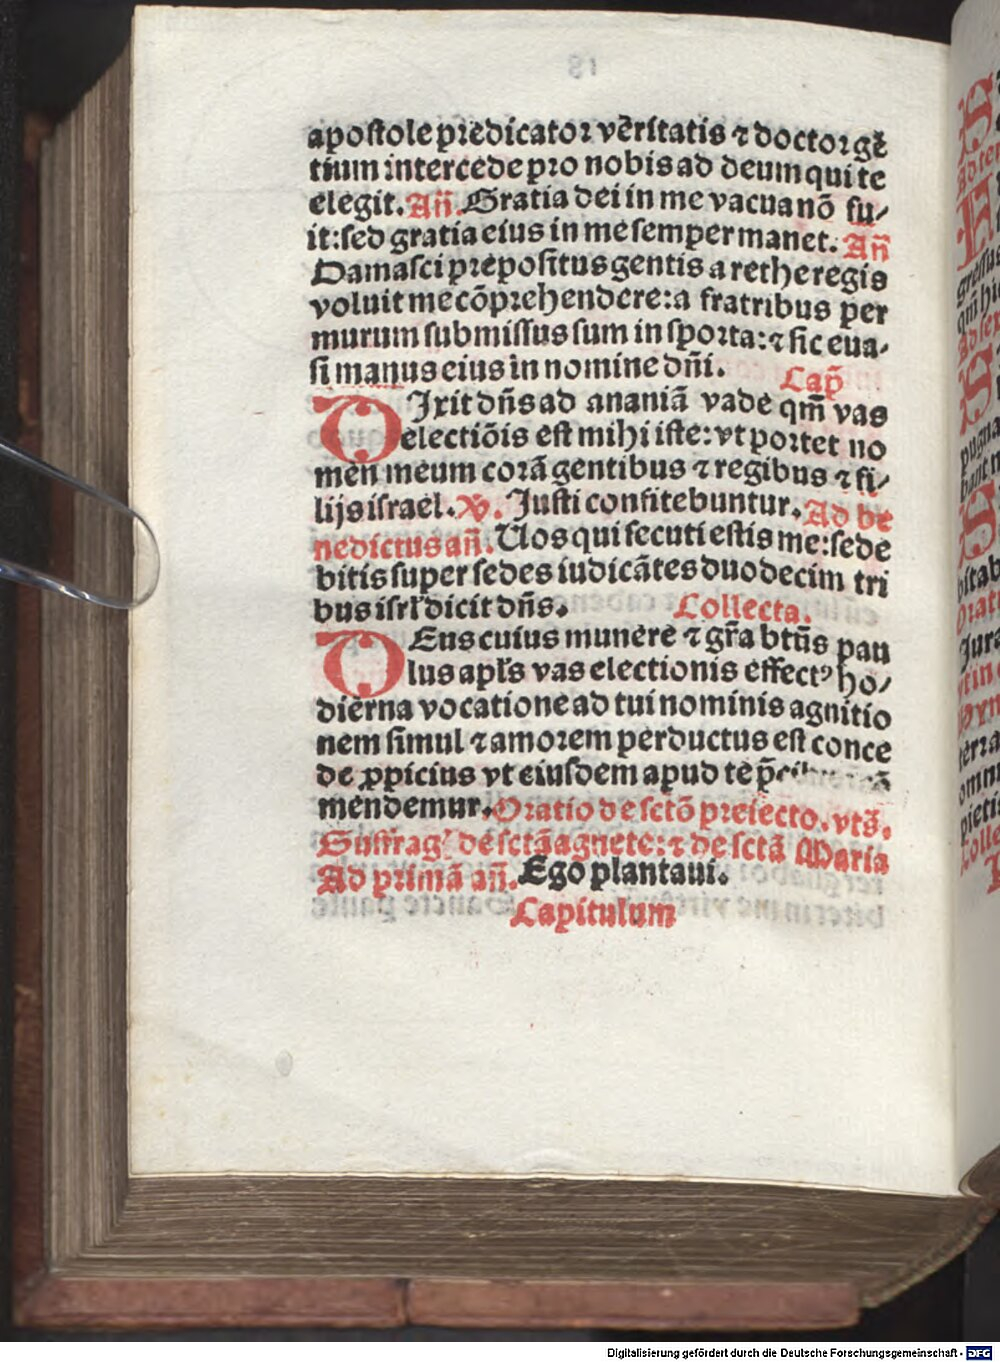 apostole predicator veritatis ⁊ doctor gē
tium intercede pro nobis ad deum qui te
elegit. Añ. Gratia dei in me vacua nō fu⸗
it: sed gratia eius in me semper manet. Añ
Damasci prepositus gentis arethe regis
voluit me cōprehendere: a fratribus per
murum submissus sum in sporta: ⁊ sic eua⸗
si manus eius in nomine dñi. Cap̄
DIxit dñs ad ananiā vade qm̄ vas
electiōis est mihi iste: vt portet no
men meum corā gentibus ⁊ regibus ⁊ fi⸗
lijs israel. V. Justi confitebuntur. Ad be
nedictus añ. Uos qui secuti estis me: sede
bitis super sedes iudicātes duodecim tri
bus isrl' dicit dñs. Collecta.
DEus cuius munere ⁊ gr̄a btūs pau
lus apl's vas electionis effectꝰ ho⸗
dierna vocatione ad tui nominis agnitio
nem simul ⁊ amorem perductus est conce
de ꝓpicius vt eiusdem apud te
mendemur. Oratio de sctō preiecto. vts̄.
Suffrag' de sctā agnete: ⁊ de sctā Maria
Ad primā añ. Ego plantaui.
Capitulum
Digitalisierung gefördert durch die Deutsche Forschungsgemeinschaft - DFG